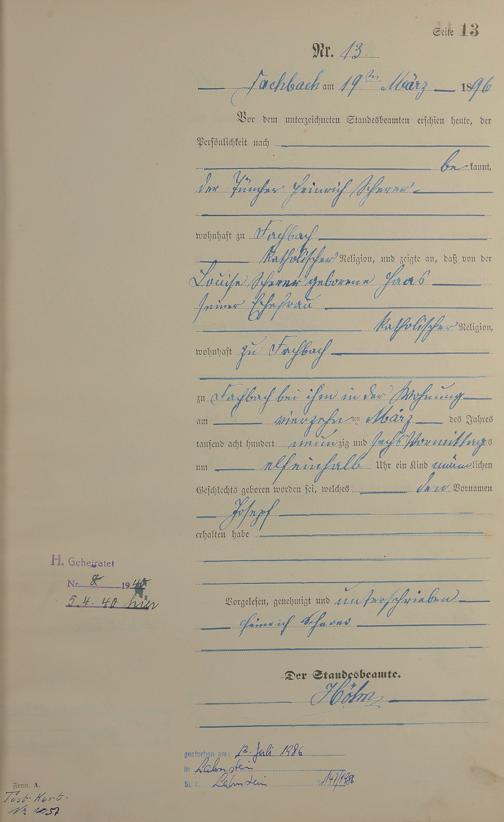 Seite 13
Nr. 13
Fachbach am 19ten März 1896
Vor dem unterzeichneten Standesbeamten erschien heute, der
Persönlichkeit nach
be kannt,
der Tüncher Heinrich Scherer
wohnhaft zu Fachbach
katholischer Religion, und zeigte an, daß von der
Louise Scherer geborene Haas
seiner Ehefrau
katholischer Religion,
wohnhaft zu Fachbach
zu Fachbach bei ihm in der Wohnung
am vierzehnten März des Jahres
tausend acht hundert neunzig und sechs Vormittags
um elfeinhalb Uhr ein Kind männlichen
Geschlechts geboren worden sei, welches den Vornamen
Josepf
erhalten habe
H. Geheiratet
Nr. 8 1940
5.4.40 hier
Vorgelesen, genehmigt und unterschrieben
Heinrich Scherer
Der Standesbeamte.
gestorben am: Juli 1986
in Lahnstein
St. A. Lahnstein 147/1986
Form. A.